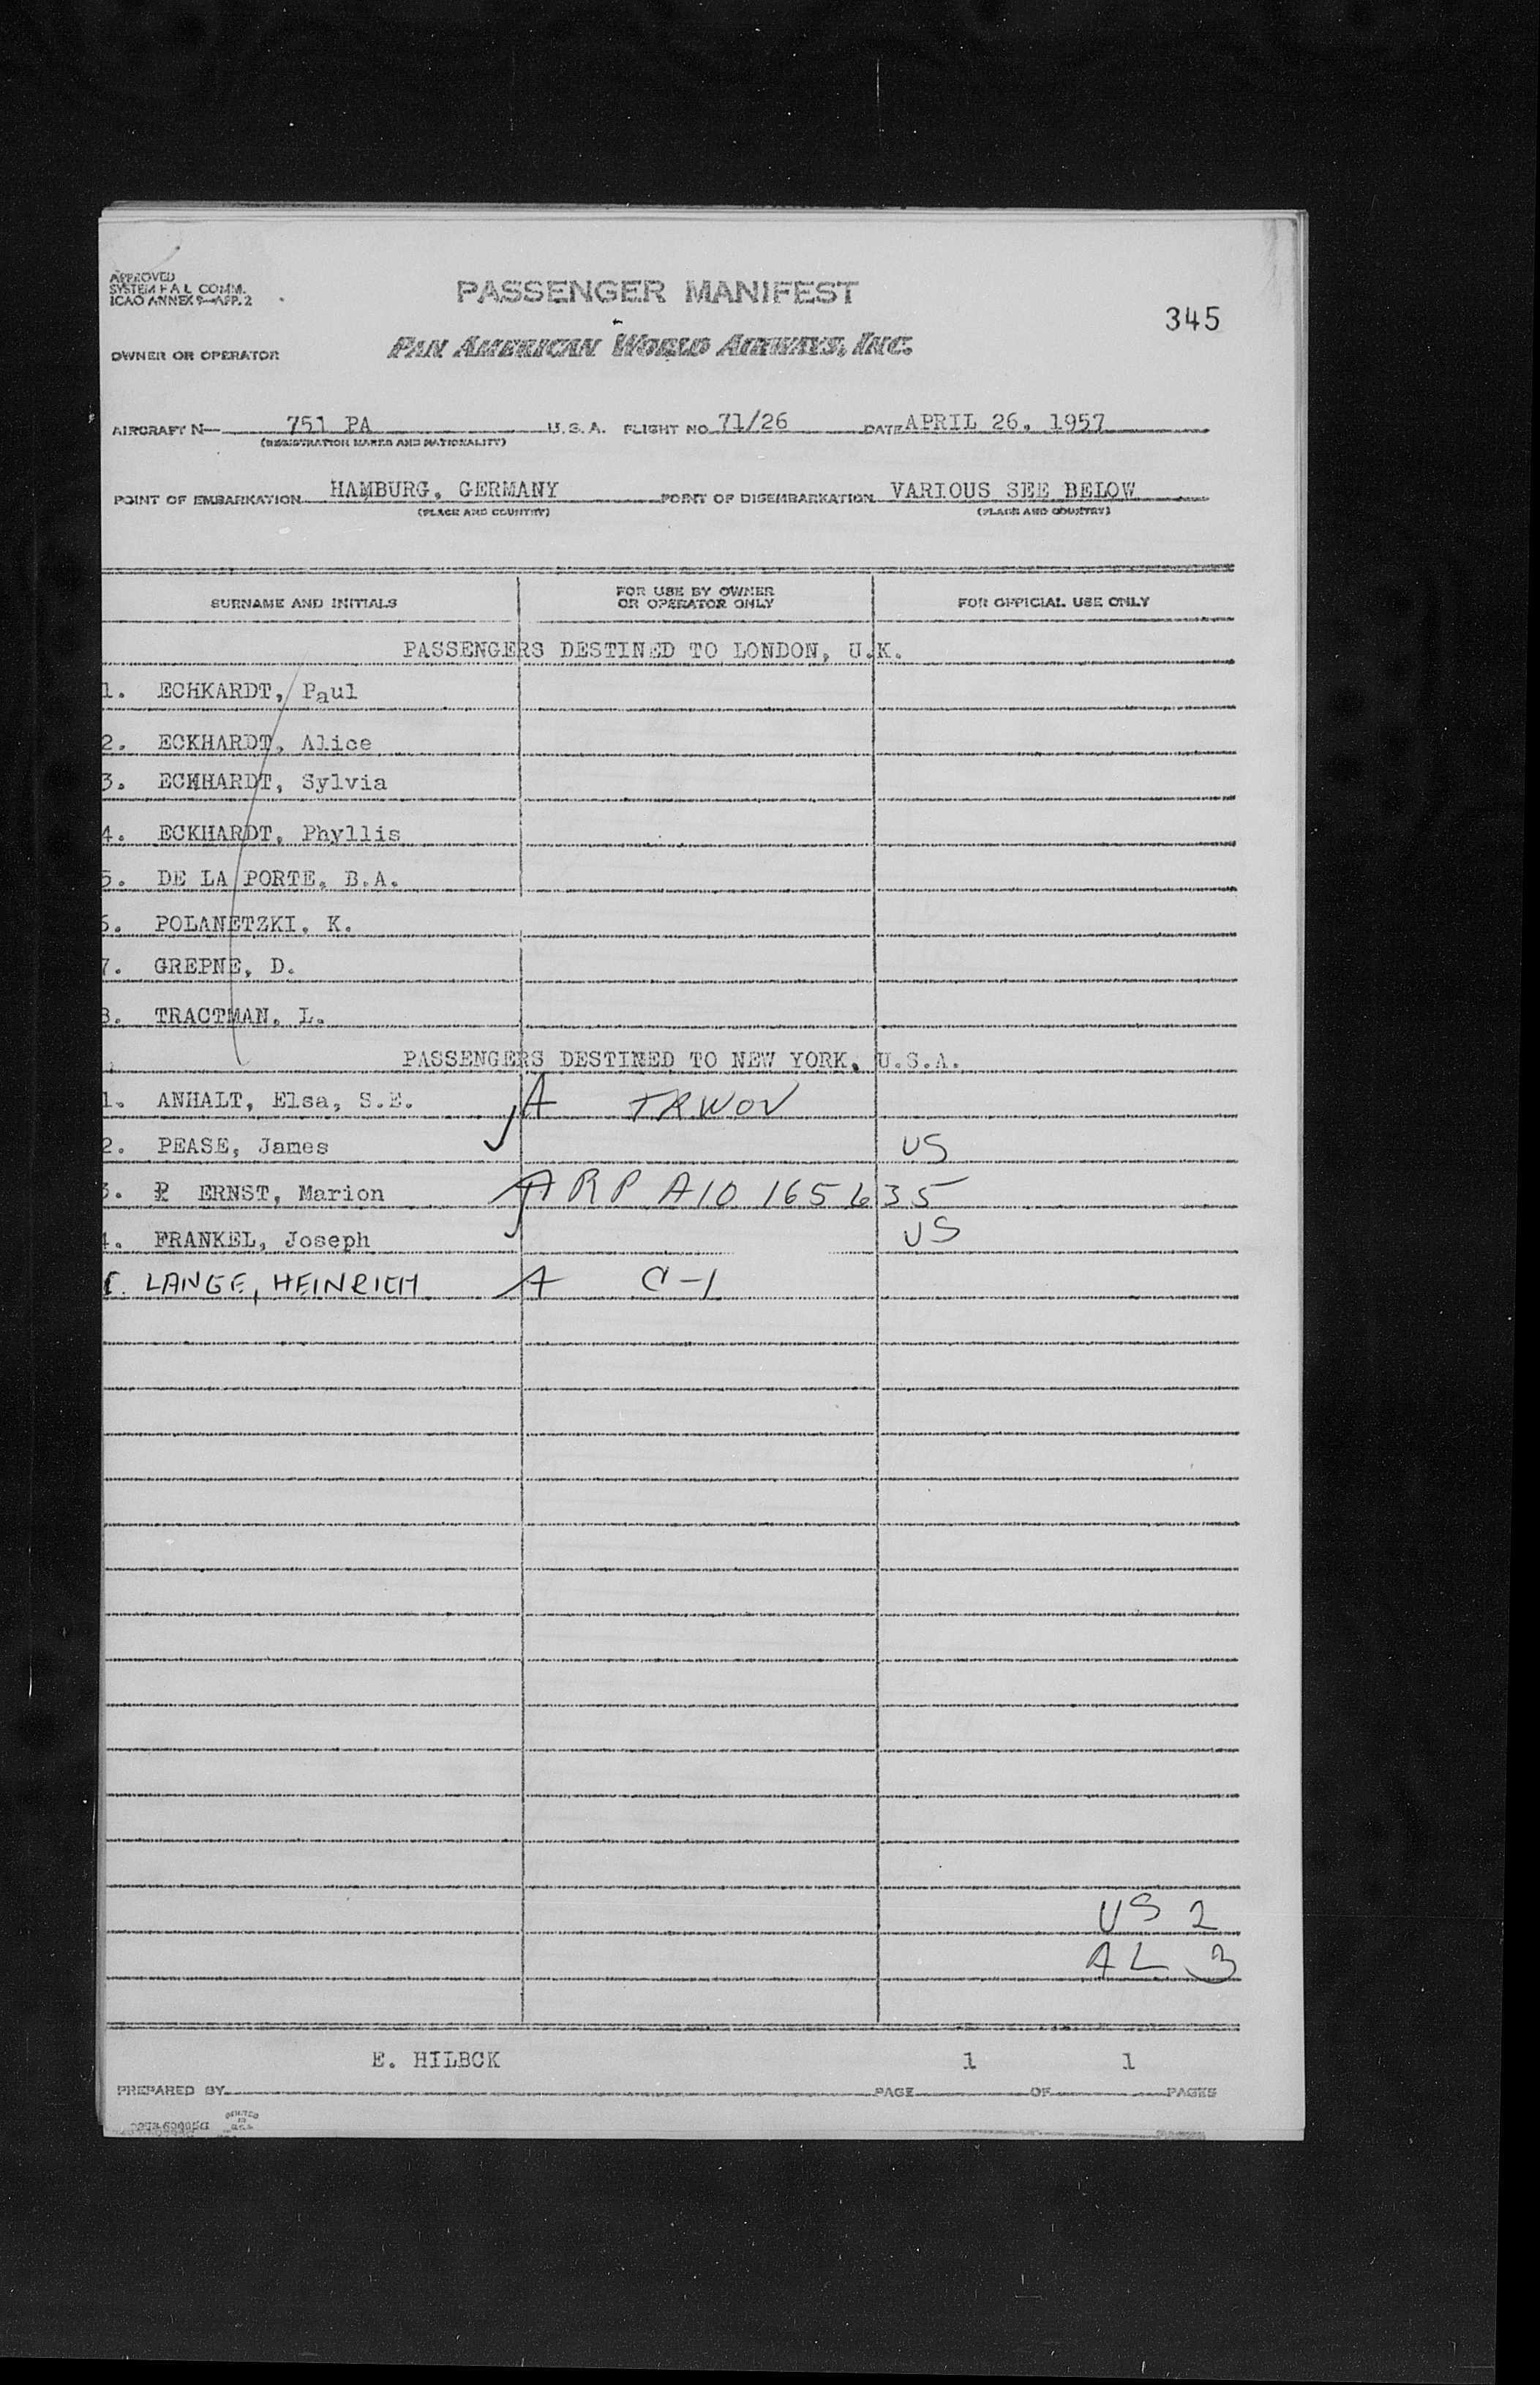 APPROVED
SYSTEM F A L COMM.
ICAO ANNEX 9—APP. 2
PASSENGER MANIFEST
345
OWNER OR OPERATOR PAN AMERICAN WORLD AIRWAYS, INC.
AIRCRAFT N— 751 PA U.S.A. FLIGHT NO. 71/26 DATE APRIL 26, 1957
(REGISTRATION MARKS AND NATIONALITY)
POINT OF EMBARKATION HAMBURG, GERMANY POINT OF DISEMBARKATION VARIOUS SEE BELOW
(PLACE AND COUNTRY) (PLACE AND COUNTRY)
SURNAME AND INITIALS FOR USE BY OWNER OR OPERATOR ONLY FOR OFFICIAL USE ONLY
PASSENGERS DESTINED TO LONDON, U.K.
1. ECHKARDT, Paul
2. ECKHARDT, Alice
3. ECKHARDT, Sylvia
4. ECKHARDT, Phyllis
5. DE LA PORTE, B.A.
6. POLANETZKI, K.
7. GREPNE, D.
8. TRACTMAN, L.
PASSENGERS DESTINED TO NEW YORK, U.S.A.
1. ANHALT, Elsa, S.E. A TRWOV
2. PEASE, James US
3. P ERNST, Marion A R P A10 165 635
4. FRANKEL, Joseph US
LANGE, HEINRICH A C-1
US 2
AL 3
E. HILBCK 1 1
PREPARED BY PAGE OF PAGES
PRINTED IN U.S.A.